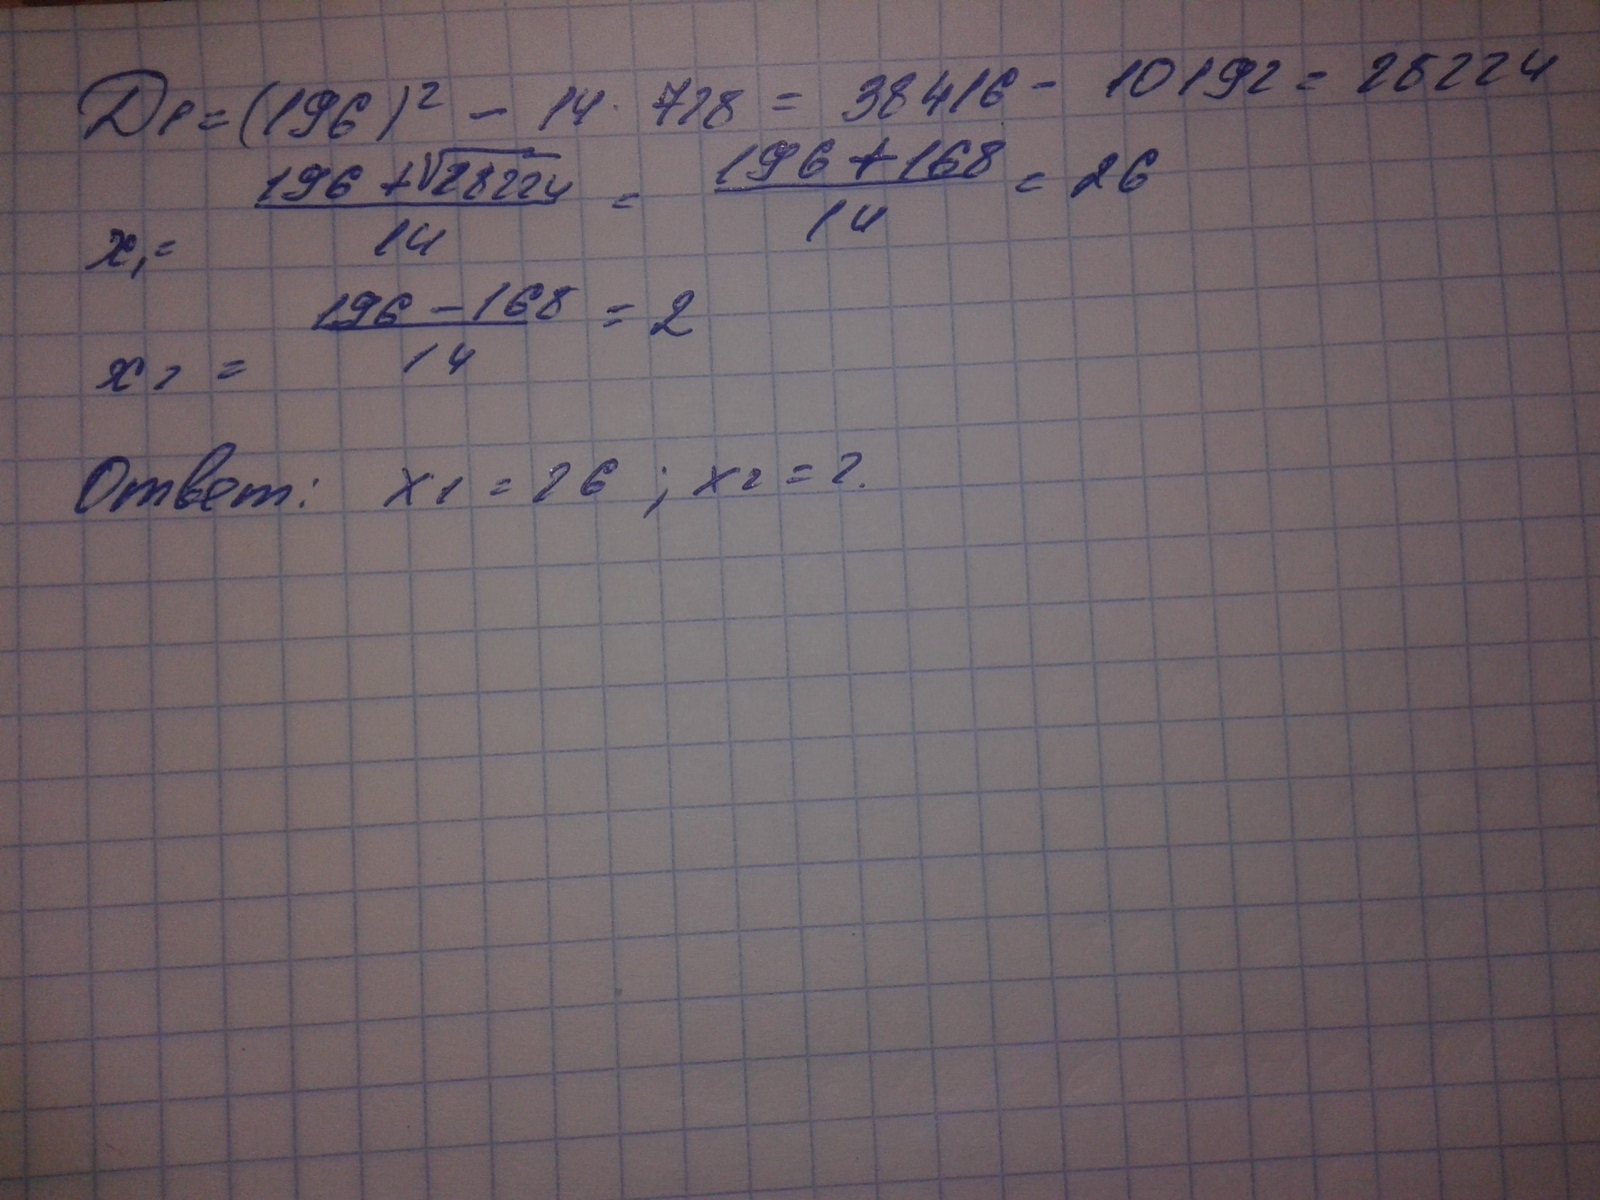 D₁ = (196)² - 14 · 728 = 38416 - 10192 = 28224
x₁ = (196 + √28224)/14 = (196 + 168)/14 = 26
x₂ = (196 - 168)/14 = 2
Ответ: x₁ = 26 ; x₂ = 2.